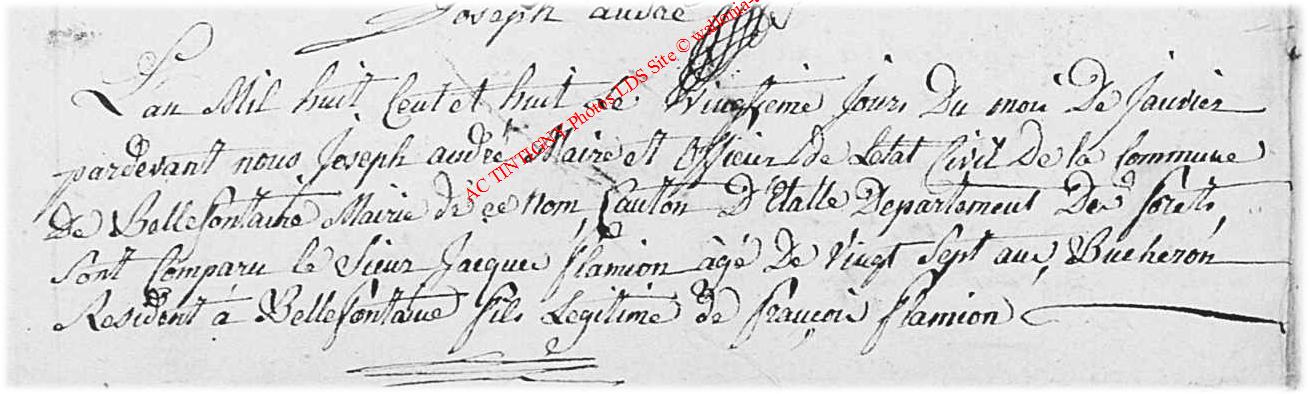 Joseph andré
L'an Mil huit Cent et huit le Vingtieme jours Du moi De janvier
pardevant nous Joseph andré Maire et Officier de Letat Civil De la Commune
De Bellefontaine Mairie de ce Nom, Canton D'Etalle Departement Des forêts,
sont Comparu le Sieur Jacques flamion âgé De Vingt Sept ans, Bucheron
Resident á Bellefontaine fils Legitime de françois flamion
AC TINTIGNY Photos LDS Site © wallonia-